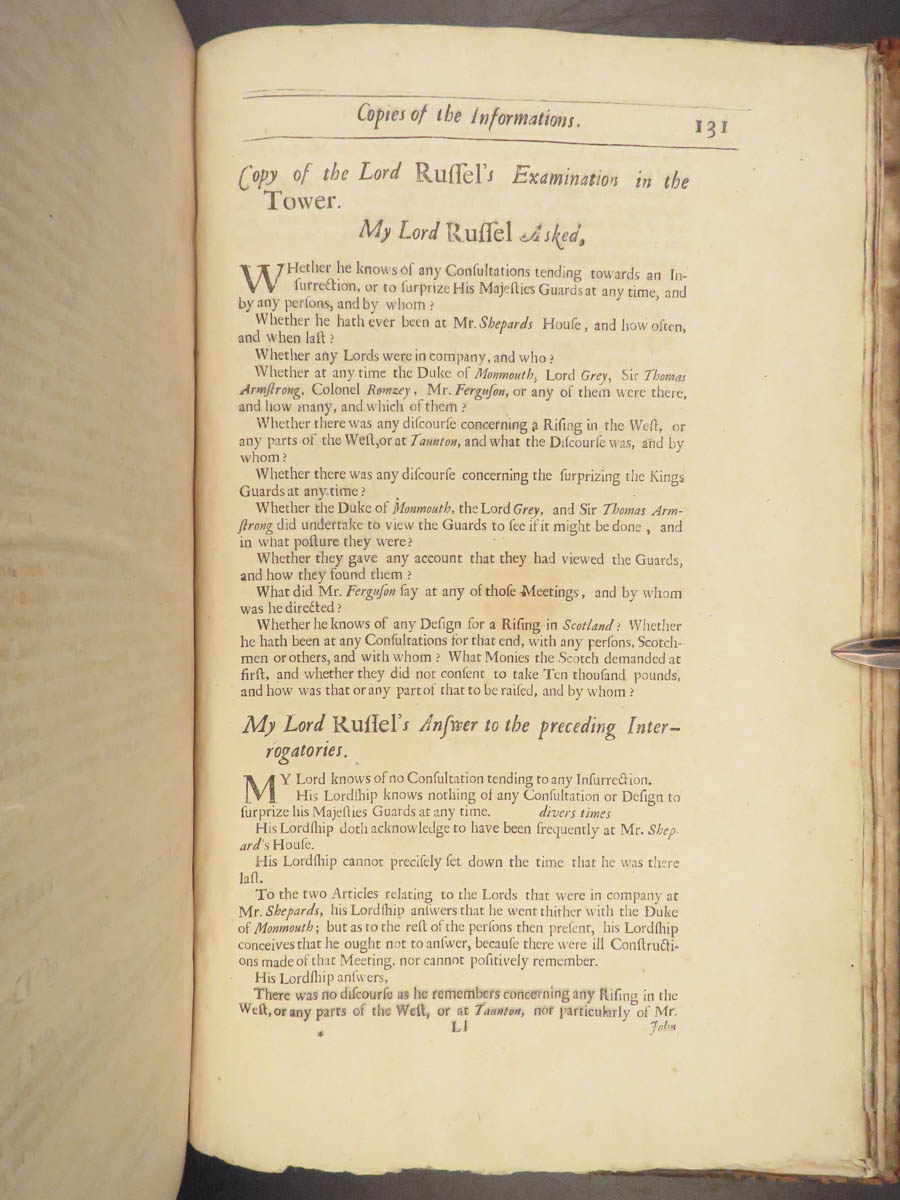 Copies of the Informations. 131
Copy of the Lord Ruſſel's Examination in the
Tower.
My Lord Ruſſel Asked,
WHether he knows of any Conſultations tending towards an In-
ſurrection, or to ſurprize His Majeſties Guards at any time, and
by any perſons, and by whom?
Whether he hath ever been at Mr. Shepards Houſe, and how often,
and when laſt?
Whether any Lords were in company, and who?
Whether at any time the Duke of Monmouth, Lord Grey, Sir Thomas
Armſtrong, Colonel Romzey, Mr. Ferguſon, or any of them were there,
and how many, and which of them?
Whether there was any diſcourſe concerning a Riſing in the Weſt, or
any parts of the Weſt, or at Taunton, and what the Diſcourſe was, and by
whom?
Whether there was any diſcourſe concerning the ſurprizing the Kings
Guards at any time?
Whether the Duke of Monmouth, the Lord Grey, and Sir Thomas Arm-
ſtrong did undertake to view the Guards to ſee if it might be done, and
in what poſture they were?
Whether they gave any account that they had viewed the Guards,
and how they found them?
What did Mr. Ferguſon ſay at any of thoſe Meetings, and by whom
was he directed?
Whether he knows of any Deſign for a Riſing in Scotland? Whether
he hath been at any Conſultations for that end, with any perſons, Scotch-
men or others, and with whom? What Monies the Scotch demanded at
firſt, and whether they did not conſent to take Ten thouſand pounds,
and how was that or any part of that to be raiſed, and by whom?
My Lord Ruſſel's Anſwer to the preceding Inter-
rogatories.
MY Lord knows of no Conſultation tending to any Inſurrection.
His Lordſhip knows nothing of any Conſultation or Deſign to
ſurprize his Majeſties Guards at any time. divers times
His Lordſhip doth acknowledge to have been frequently at Mr. Shep-
ard's Houſe.
His Lordſhip cannot preciſely ſet down the time that he was there
laſt.
To the two Articles relating to the Lords that were in company at
Mr. Shepards, his Lordſhip anſwers that he went thither with the Duke
of Monmouth; but as to the reſt of the perſons then preſent, his Lordſhip
conceives that he ought not to anſwer, becauſe there were ill Conſtructi-
ons made of that Meeting, nor cannot poſitively remember.
His Lordſhip anſwers,
There was no diſcourſe as he remembers concerning any Riſing in the
Weſt, or any parts of the Weſt, or at Taunton, nor particularly of Mr.
* Ll John